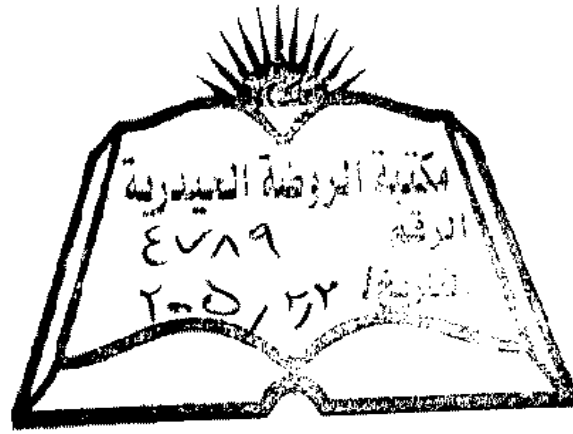 مكتبة الروضة الحيدرية
الرقم ٤٧٨٩
التاريخ / ٢٠٠٥